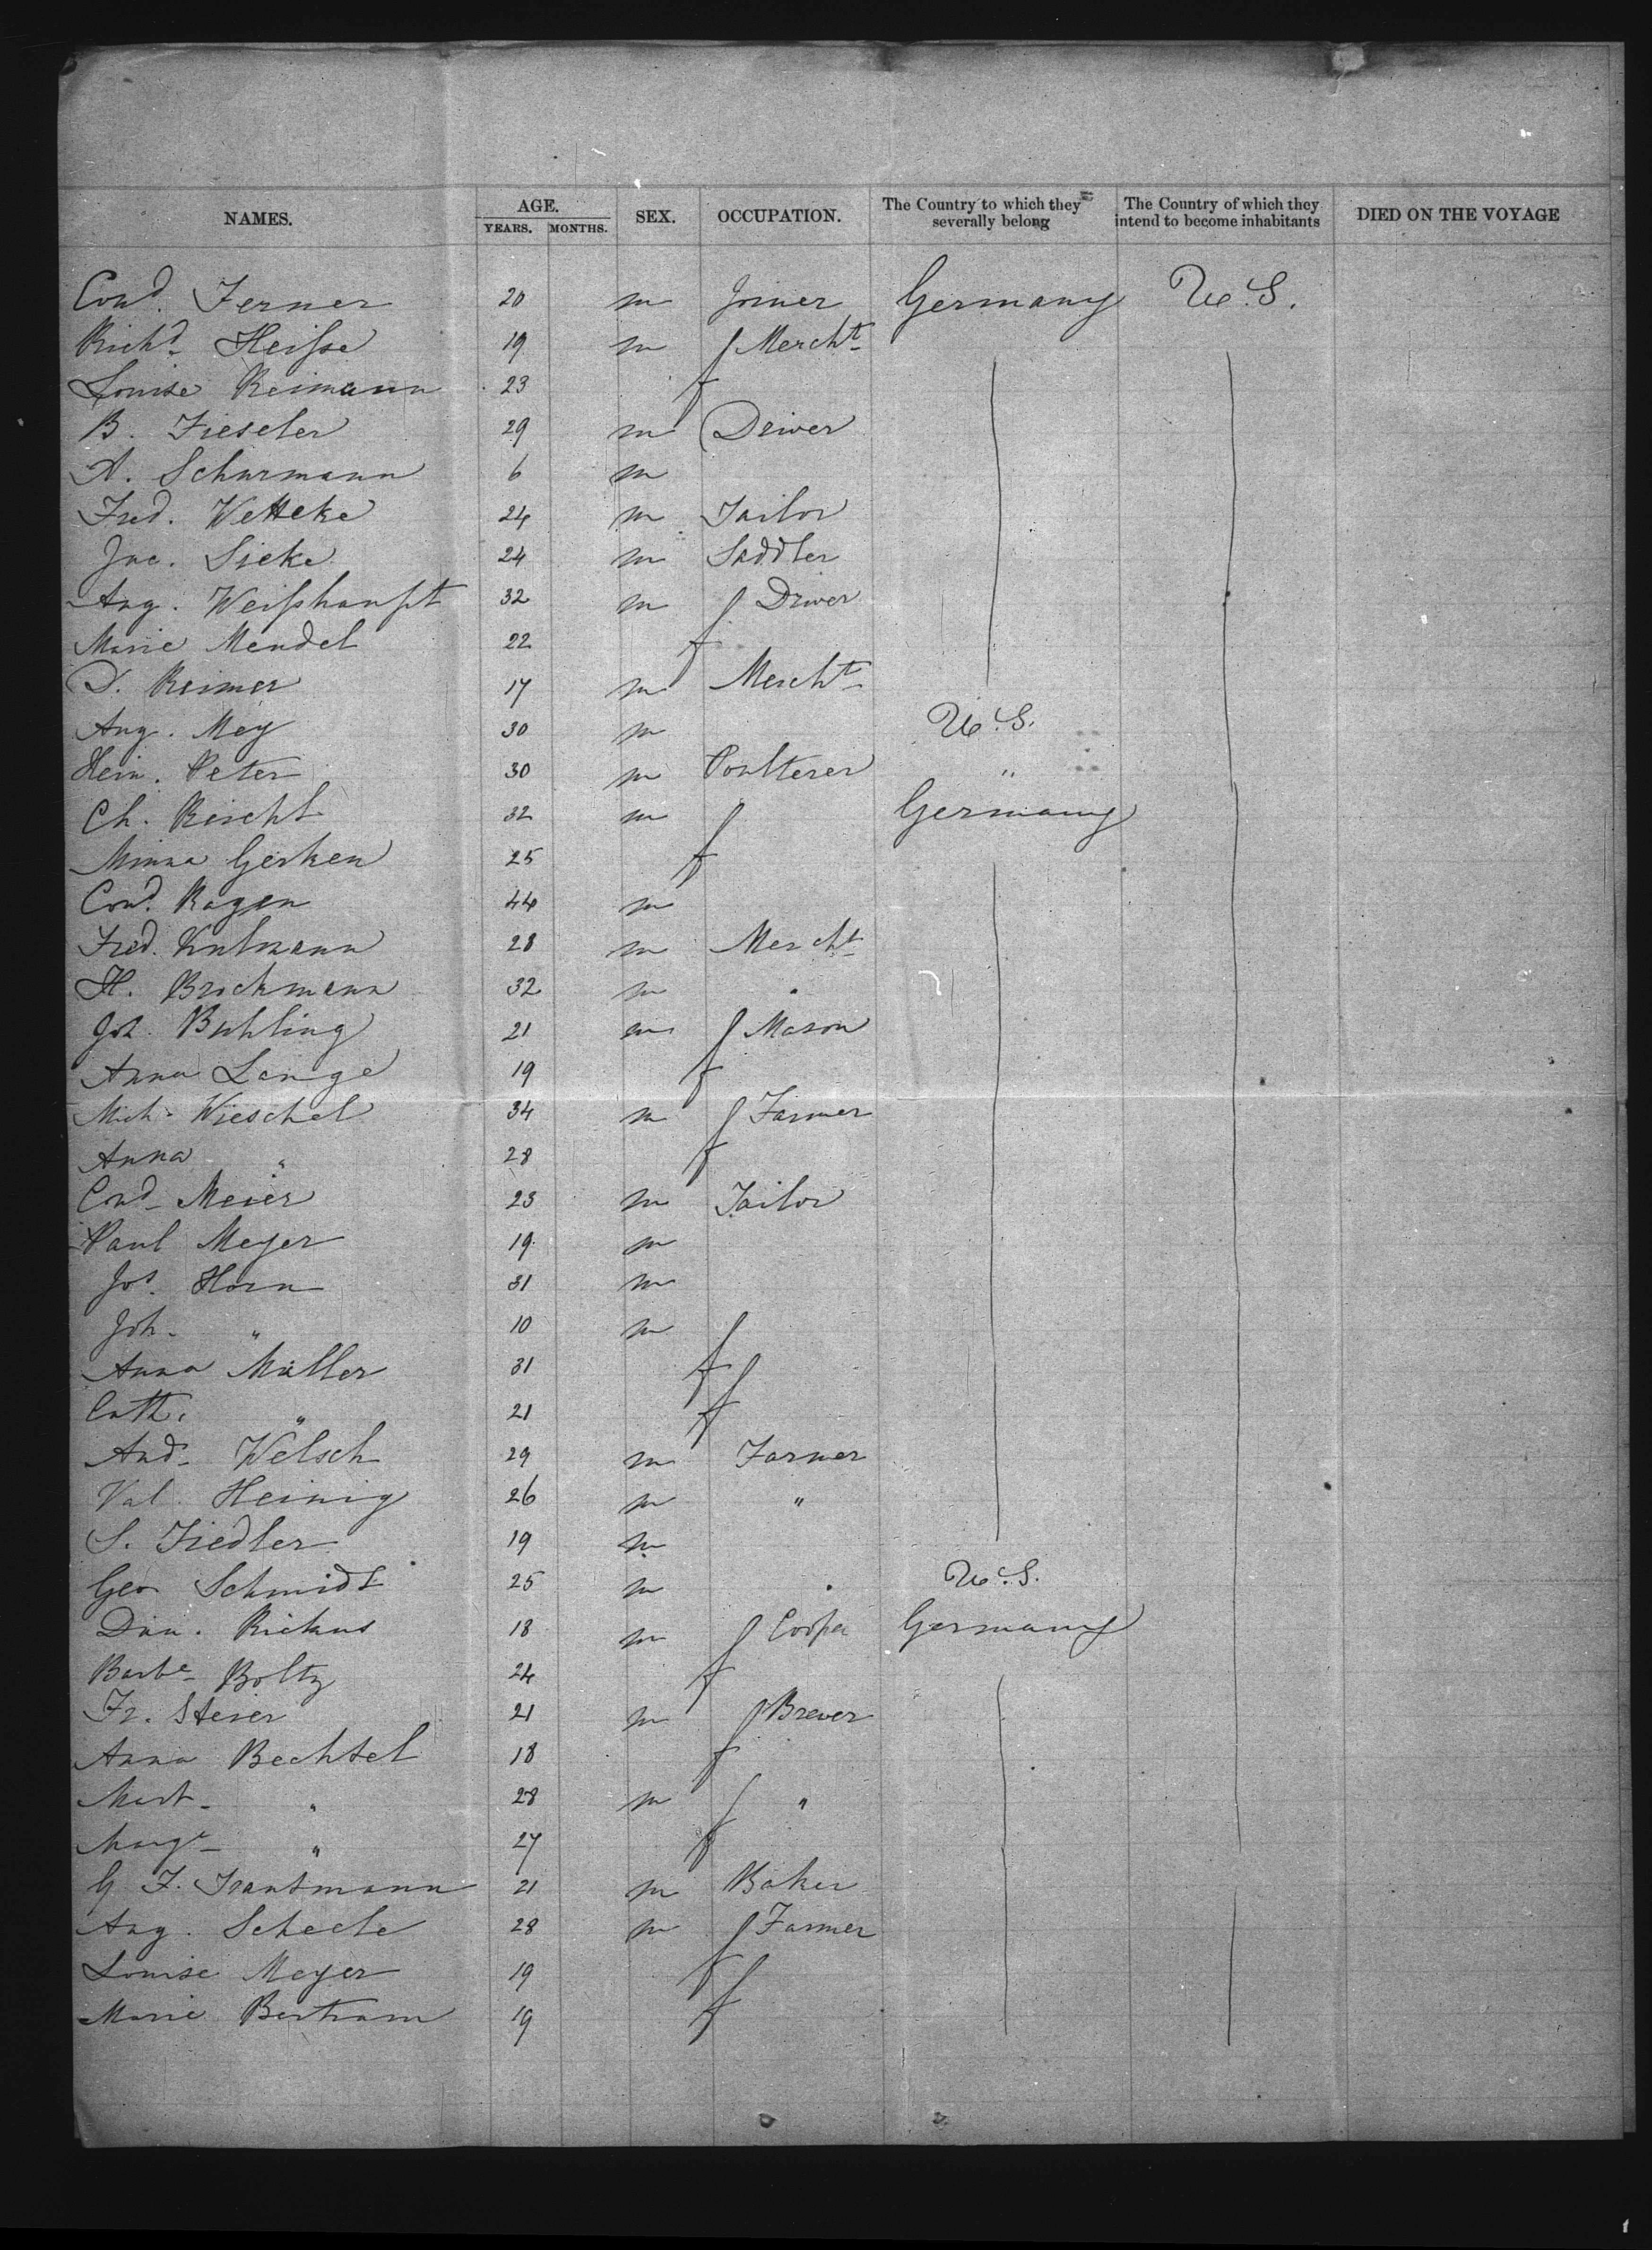 NAMES. AGE. SEX. OCCUPATION. The Country to which they severally belong The Country of which they intend to become inhabitants DIED ON THE VOYAGE
YEARS. MONTHS.
Cond. Ferner 20 m Joiner Germany U.S.
Richd. Heiſse 19 m Mercht.
Louise Reimann 23 f
B. Fieseler 29 m Driver
A. Schurmann 6 m
Fred. Wetteke 24 m Tailor
Jac. Sieke 24 m Saddler
Aug. Weiſshaupt 32 m Driver
Marie Mendel 22 f
D. Reimer 17 m Mercht.
Aug. Mey 30 m U.S.
Hein. Peter 30 m Poulterer "
Ch. Reicht 32 m Germany
Minna Gerken 25 f
Cond. Ragen 44 m
Fred. Kulmann 28 m Mercht.
H. Brockmann 32 m
Joh. Buhling 21 m Mason
Anna Lange 19 f
Mich. Wieschel 34 m Farmer
Anna " 28 f
Cond. Meier 23 m Tailor
Paul Meyer 19 m
Jos. Horn 31 m
Joh. " 10 m
Anna Müller 31 f
Cath. " 21 f
And. Welsch 29 m Farmer
Val. Heinig 26 m "
S. Fiedler 19 m
Geo Schmidt 25 m U.S.
Dan. Rickus 18 m Cooper Germany
Barbe. Boltz 24 f
Fr. Steier 21 m Brewer
Anna Bechtel 18 f
Mart. " 28 m "
Marge. " 27 f
G. F. Trautmann 21 m Baker
Aug. Scheele 28 m Farmer
Louise Meyer 19 f
Marie Bertram 19 f